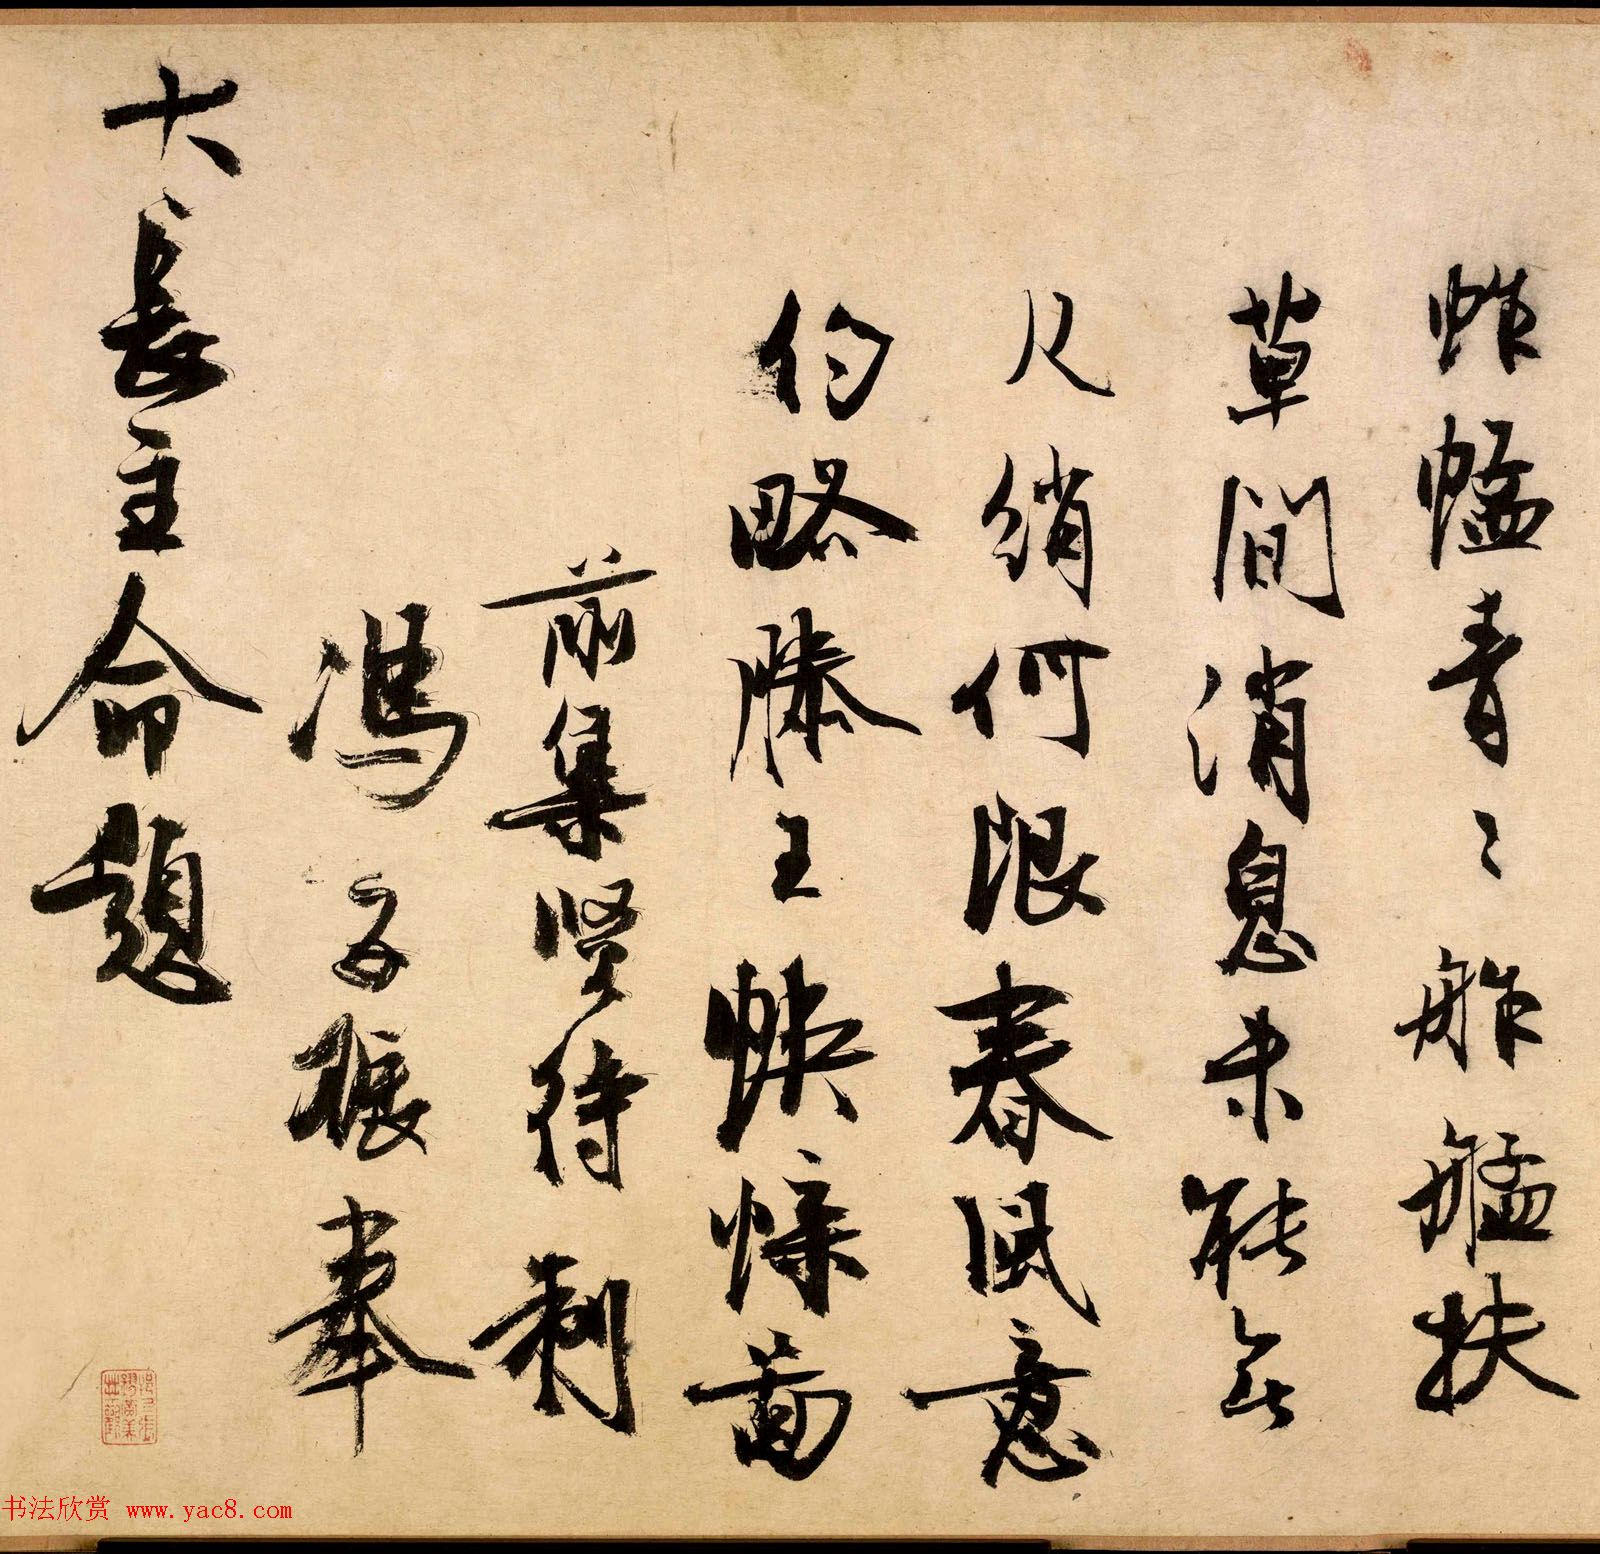 蚱蜢青々舴艋扶
草間消息未能無
尺綃何限春風意
約略滕王蛺蝶圖
前集賢待制
馮子振奉
大長主命題
书法欣赏 www.yac8.com